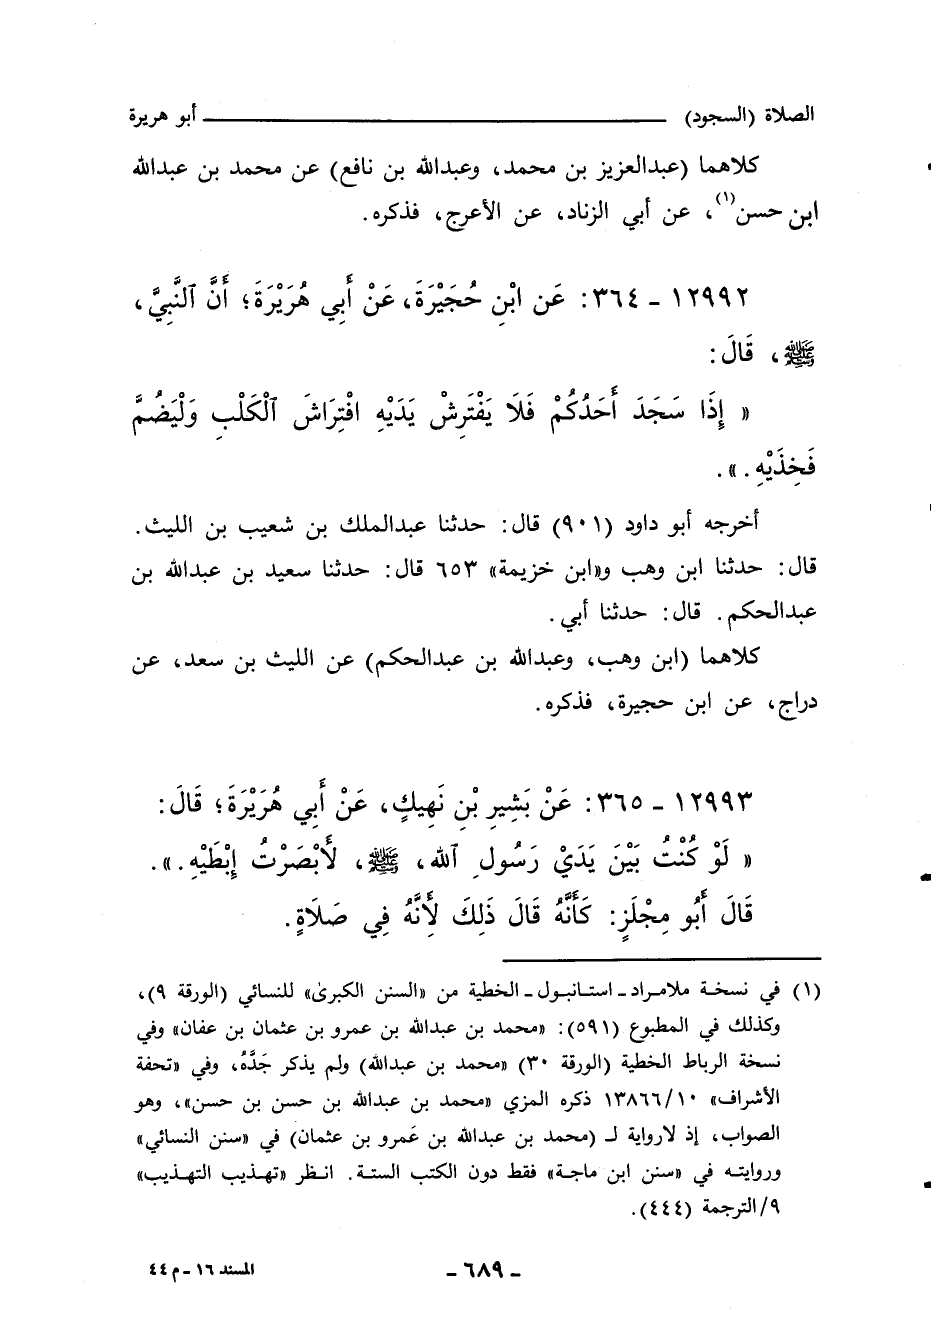 الصلاة (السجود) ــــــــــــــــــــ أبو هريرة
كلاهما (عبدالعزيز بن محمد، وعبدالله بن نافع) عن محمد بن عبدالله
ابن حسن(١)، عن أبي الزناد، عن الأعرج، فذكره.
١٢٩٩٢ - ٣٦٤: عَن ابْنِ حُجَيْرَةَ، عَنْ أَبِي هُرَيْرَةَ؛ أَنَّ ٱلنَّبِيَّ،
ﷺ، قَالَ:
« إِذَا سَجَدَ أَحَدُكُمْ فَلَا يَفْتَرِشْ يَدَيْهِ افْتِرَاشَ ٱلْكَلْبِ وَلْيَضُمَّ
فَخِذَيْهِ.».
أخرجه أبو داود (٩٠١) قال: حدثنا عبدالملك بن شعيب بن الليث.
قال: حدثنا ابن وهب و«ابن خزيمة» ٦٥٣ قال: حدثنا سعيد بن عبدالله بن
عبدالحكم. قال: حدثنا أبي.
كلاهما (ابن وهب، وعبدالله بن عبدالحكم) عن الليث بن سعد، عن
دراج، عن ابن حجيرة، فذكره.
١٢٩٩٣ - ٣٦٥: عَنْ بَشِيرِ بْنِ نَهِيكٍ، عَنْ أَبِي هُرَيْرَةَ؛ قَالَ:
« لَوْ كُنْتُ بَيْنَ يَدَيْ رَسُولِ ٱلله، ﷺ، لَأَبْصَرْتُ إِبْطَيْهِ.».
قَالَ أَبُو مِجْلَزٍ: كَأَنَّهُ قَالَ ذَلِكَ لِأَنَّهُ فِي صَلَاةٍ.
(١) في نسخة ملامراد - استانبول - الخطية من «السنن الكبرىٰ» للنسائي (الورقة ٩)،
وكذلك في المطبوع (٥٩١): «محمد بن عبدالله بن عمرو بن عثمان بن عفان» وفي
نسخة الرباط الخطية (الورقة ٣٠) «محمد بن عبدالله) ولم يذكر جَدَّهُ، وفي «تحفة
الأشراف» ١٠/١٣٨٦٦ ذكره المزي «محمد بن عبدالله بن حسن بن حسن»، وهو
الصواب، إذ لارواية لـ (محمد بن عبدالله بن عَمرو بن عثمان) في «سنن النسائي»
وروايته في «سنن ابن ماجة» فقط دون الكتب الستة. انظر «تهذيب التهذيب»
٩/الترجمة (٤٤٤).
- ٦٨٩ - المسند ١٦ - م ٤٤